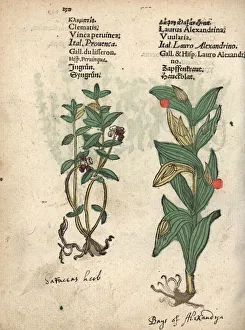 250
Κληματίς.
Clematis.
Vinca peruinca;
Ital, Prouenca.
Gall. du lisseron.
Hisp. Peruinqua.
Ingrün.
Syngrün.
Laurus Alexandrina;
Vuularia.
Ital. Lauro Alexandrino.
Gall. & Hisp. Lauro Alexandri
no.
Zapffenkraut.
Hauckblat.
herb
Bays of Alexandrya